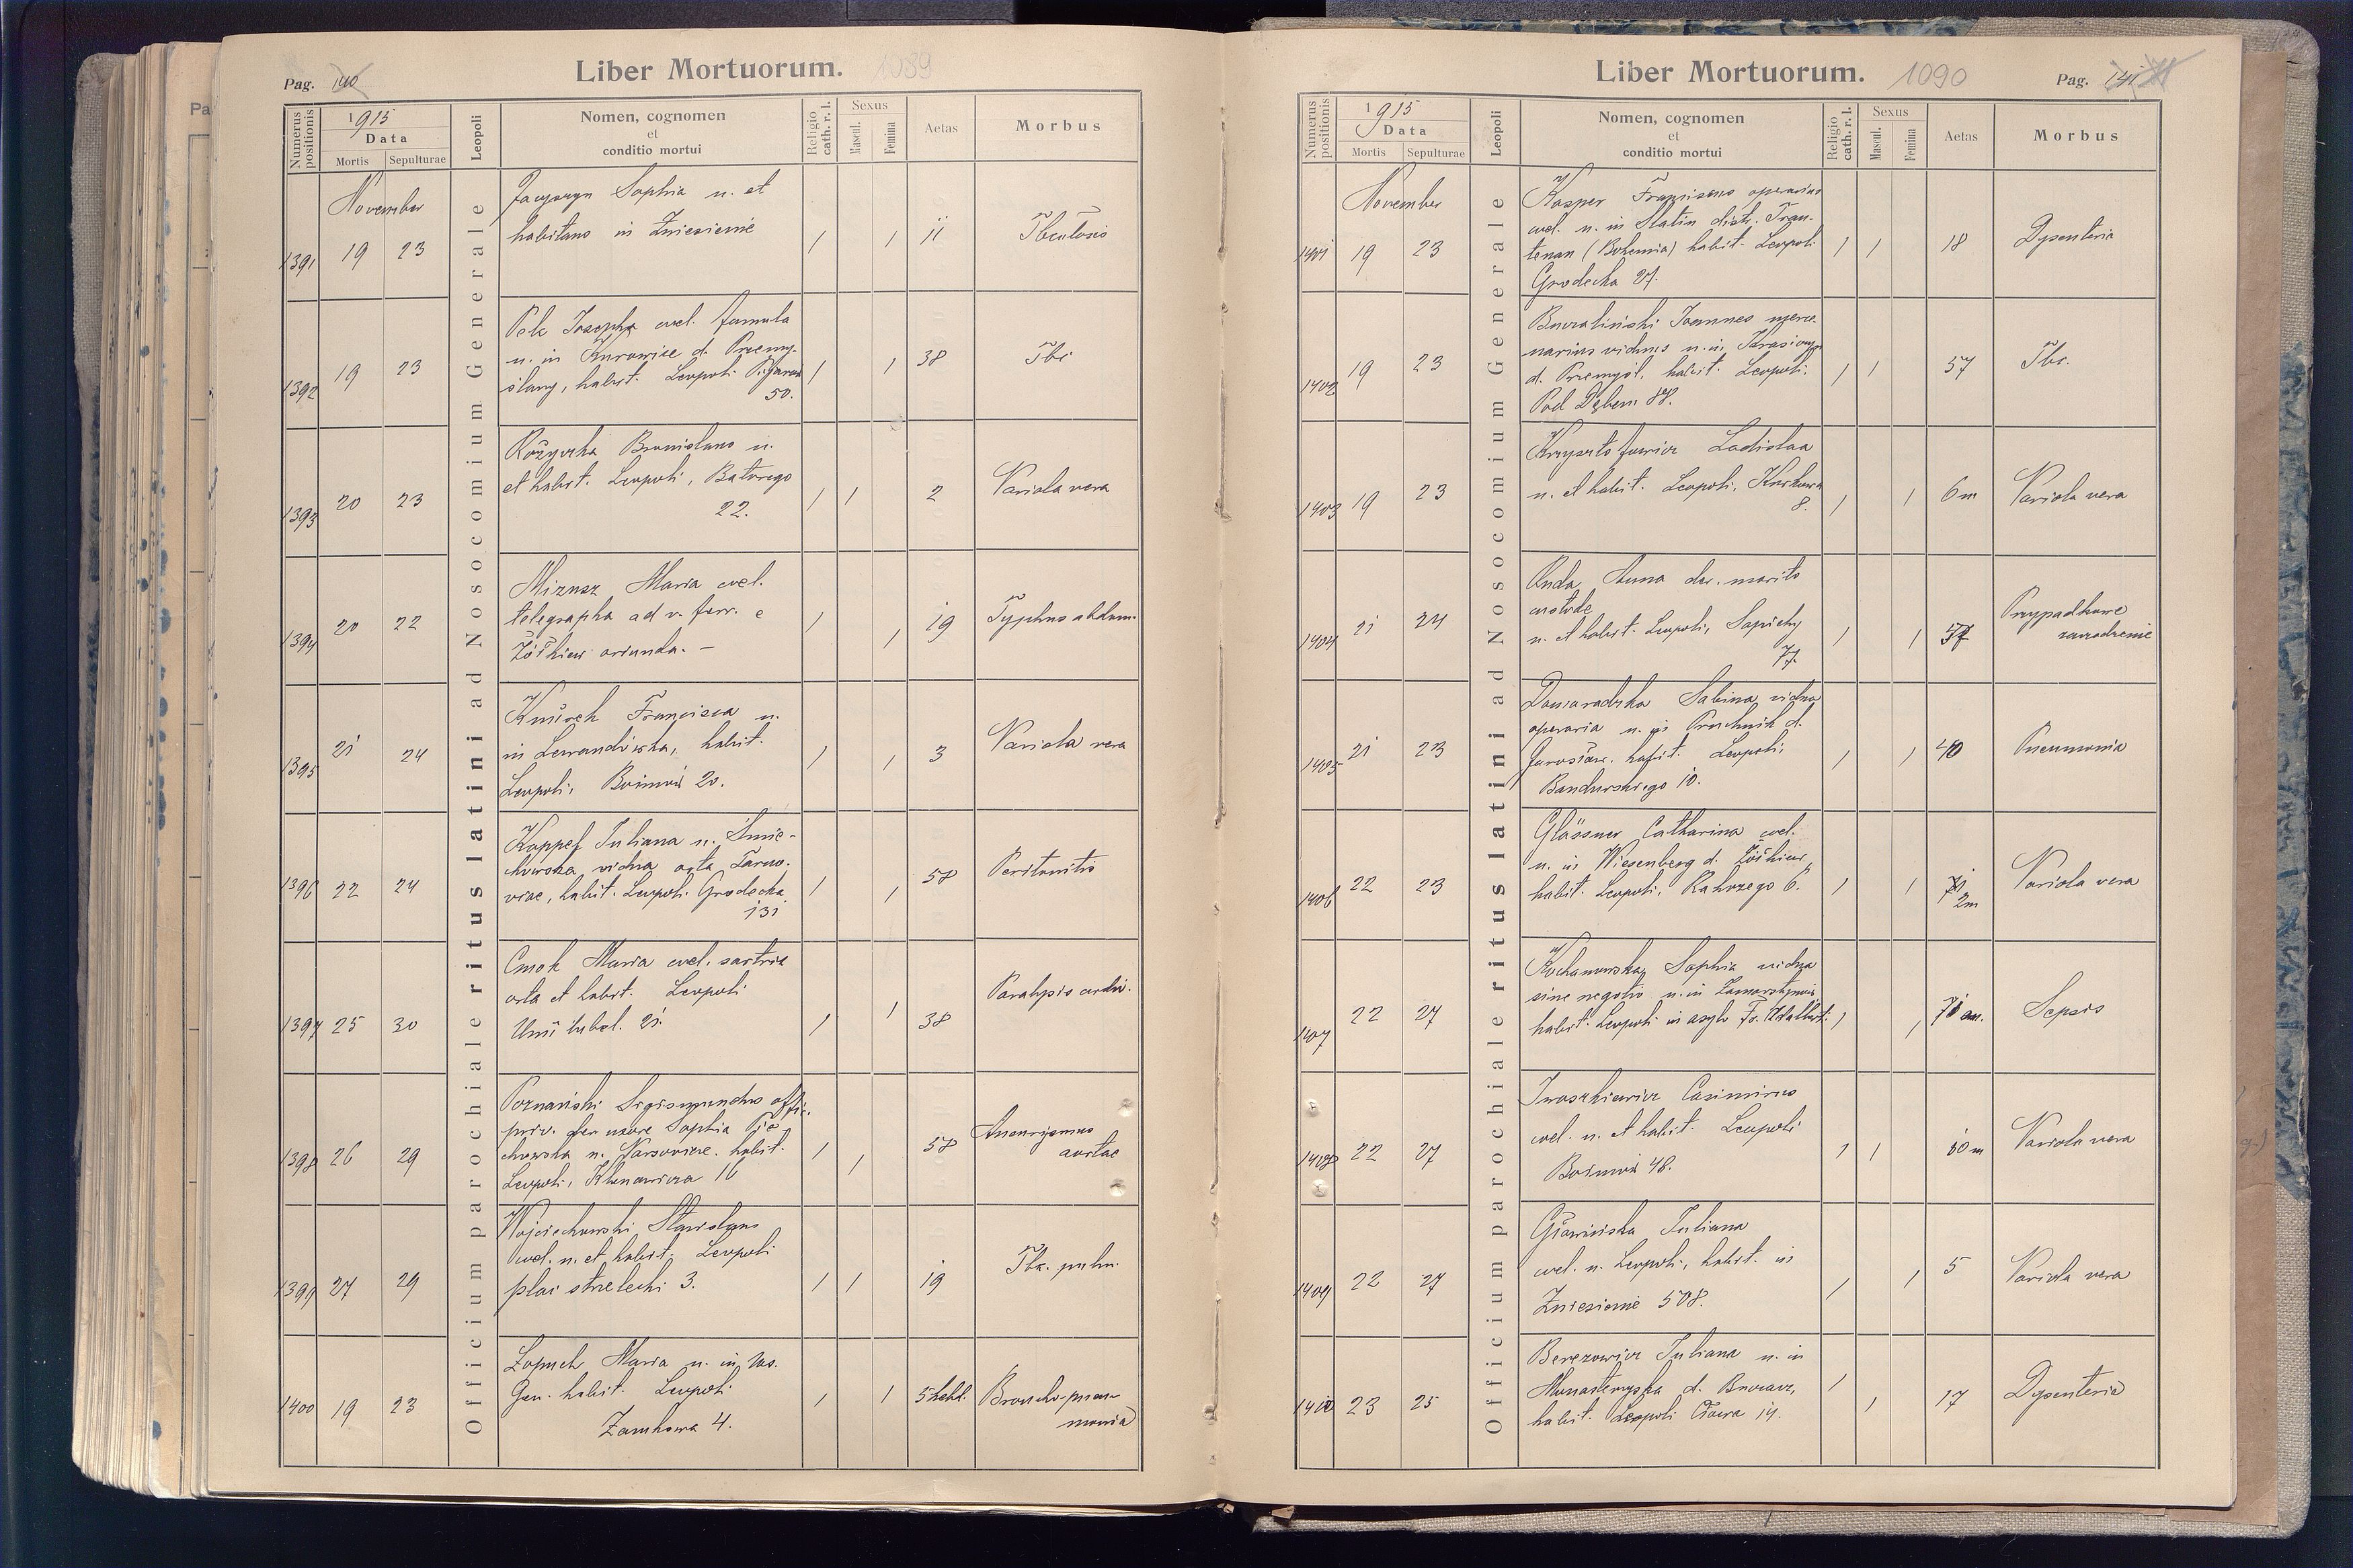 Pag. 140
Liber Mortuorum. 1089
Numerus positionis
1915
Data
Mortis Sepulturae
Leopoli
Nomen, cognomen
et
conditio mortui
Religio cath. r. l.
Sexus
Mascul. Femina
Aetas
Morbus
Officium parochiale ritus latini ad Nosocomium Generale
November
1391 19 23
Sophia n. et
habitans in Zniesienie
11
1392 19 23
Polc Josepha cael. famula
n. in Kurowice d. Przemy-
ślany, habit. Leopoli
50.
38 Tbc
1393 20 23
Różycka Bronislaus n.
et habit. Leopoli, Batorego
22.
2 Variola vera
1394 20 22
Mizusz Maria cael.
telegrapha ad v. ferr. e
Żółkiew oriunda. —
19 Typhus abdom.
1395 21 24
Francisca n.
in Lewandówka, habit.
Leopoli, Boimów 20.
3 Variola vera
1396 22 24
Koppel Juliana n. Śmie-
chowska vidua orta Tarno-
viae, habit. Leopoli Grodecka
131
58 Peritonitis
1397 25 30
Cmok Maria cael. sartrix
orta et habit. Leopoli
Unii lubel. 21.
38 Paralysis cordis.
1398 26 29
Poznański Sigismundus offic.
priv. der. uxore Sophia Pie-
chowska n. Varsoviae. habit.
Leopoli, Klonowicza 16
58 Aneurysmus
aortae
1399 27 29
Wojciechowski Stanislaus
cael. n. et habit. Leopoli
plac strzelecki 3.
19 Tbc. pulm.
1400 19 23
Łopuch Maria n. in nos.
Gen. habit. Leopoli
Zamkowa 4.
5 hebd. Broncho-pneu-
monia
Liber Mortuorum. 1090
Pag. 141
Numerus positionis
1915
Data
Mortis Sepulturae
Leopoli
Nomen, cognomen
et
conditio mortui
Religio cath. r. l.
Sexus
Mascul. Femina
Aetas
Morbus
Officium parochiale ritus latini ad Nosocomium Generale
November
1401 19 23
Kasper Franciscus operarius
cael. n. in Slatin distr. Trau-
tenau (Bohemia) habit. Leopoli
Grodecka 27.
18 Dysenteria
1402 19 23
Joannes merce-
narius viduus n. in
d. Przemyśl, habit. Leopoli.
Pod Dębem 88.
57 Tbc.
1403 19 23
Krzysztofowicz Ladislaa
n. et habit. Leopoli, Kurkowa
8.
6 m Variola vera
1404 21 24
Ruda Anna der. marito
custode
n. et habit. Leopoli, Sapiehy
77.
Przypadkowe
zaczadzenie
1405 21 23
Domaradzka Sabina vidua
operaria n. in Pruchnik d.
Jarosław. habit. Leopoli,
Bandurskiego 10.
40 Pneumonia
1406 22 23
Glässner Catharina cael.
n. in Wiesenberg d. Żółkiew,
habit. Leopoli, 6.
2m
Variola vera
1407 22 27
Kochanowska Sophia vidua
sine negotio n. in Zamarstynów
habit. Leopoli in asylo Fr. Adalberti
Sepsis
1408 22 27
Iwaszkiewicz Casimirus
cael. n. et habit. Leopoli
Boimów 48.
10 m Variola vera
1409 22 27
Juliana
cael. n. Leopoli, habit. in
Zniesienie 508.
5 Variola vera
1410 23 25
Berezowicz Juliana n. in
Monasterzyska d. Buczacz,
habit. Leopoli 14.
17 Dysenteria